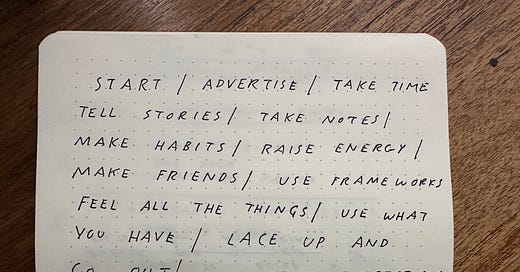 START / ADVERTISE / TAKE TIME
TELL STORIES / TAKE NOTES /
MAKE HABITS / RAISE ENERGY /
MAKE FRIENDS / USE FRAMEWORKS
FEEL ALL THE THINGS / USE WHAT
YOU HAVE / LACE UP AND
GO OUT /